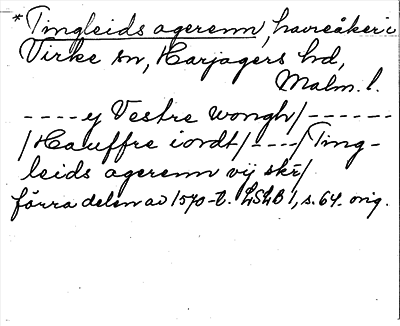 *Tingleids agerenn, havreåker i
Virke sn, Harjagers hd,
Malm. l.
----y Vestre wongh/------
/Hauffre iordt/----/Ting-
leids agerenn vij skr/
förra delen av 1570-t. LSLB 1, s. 64. orig.